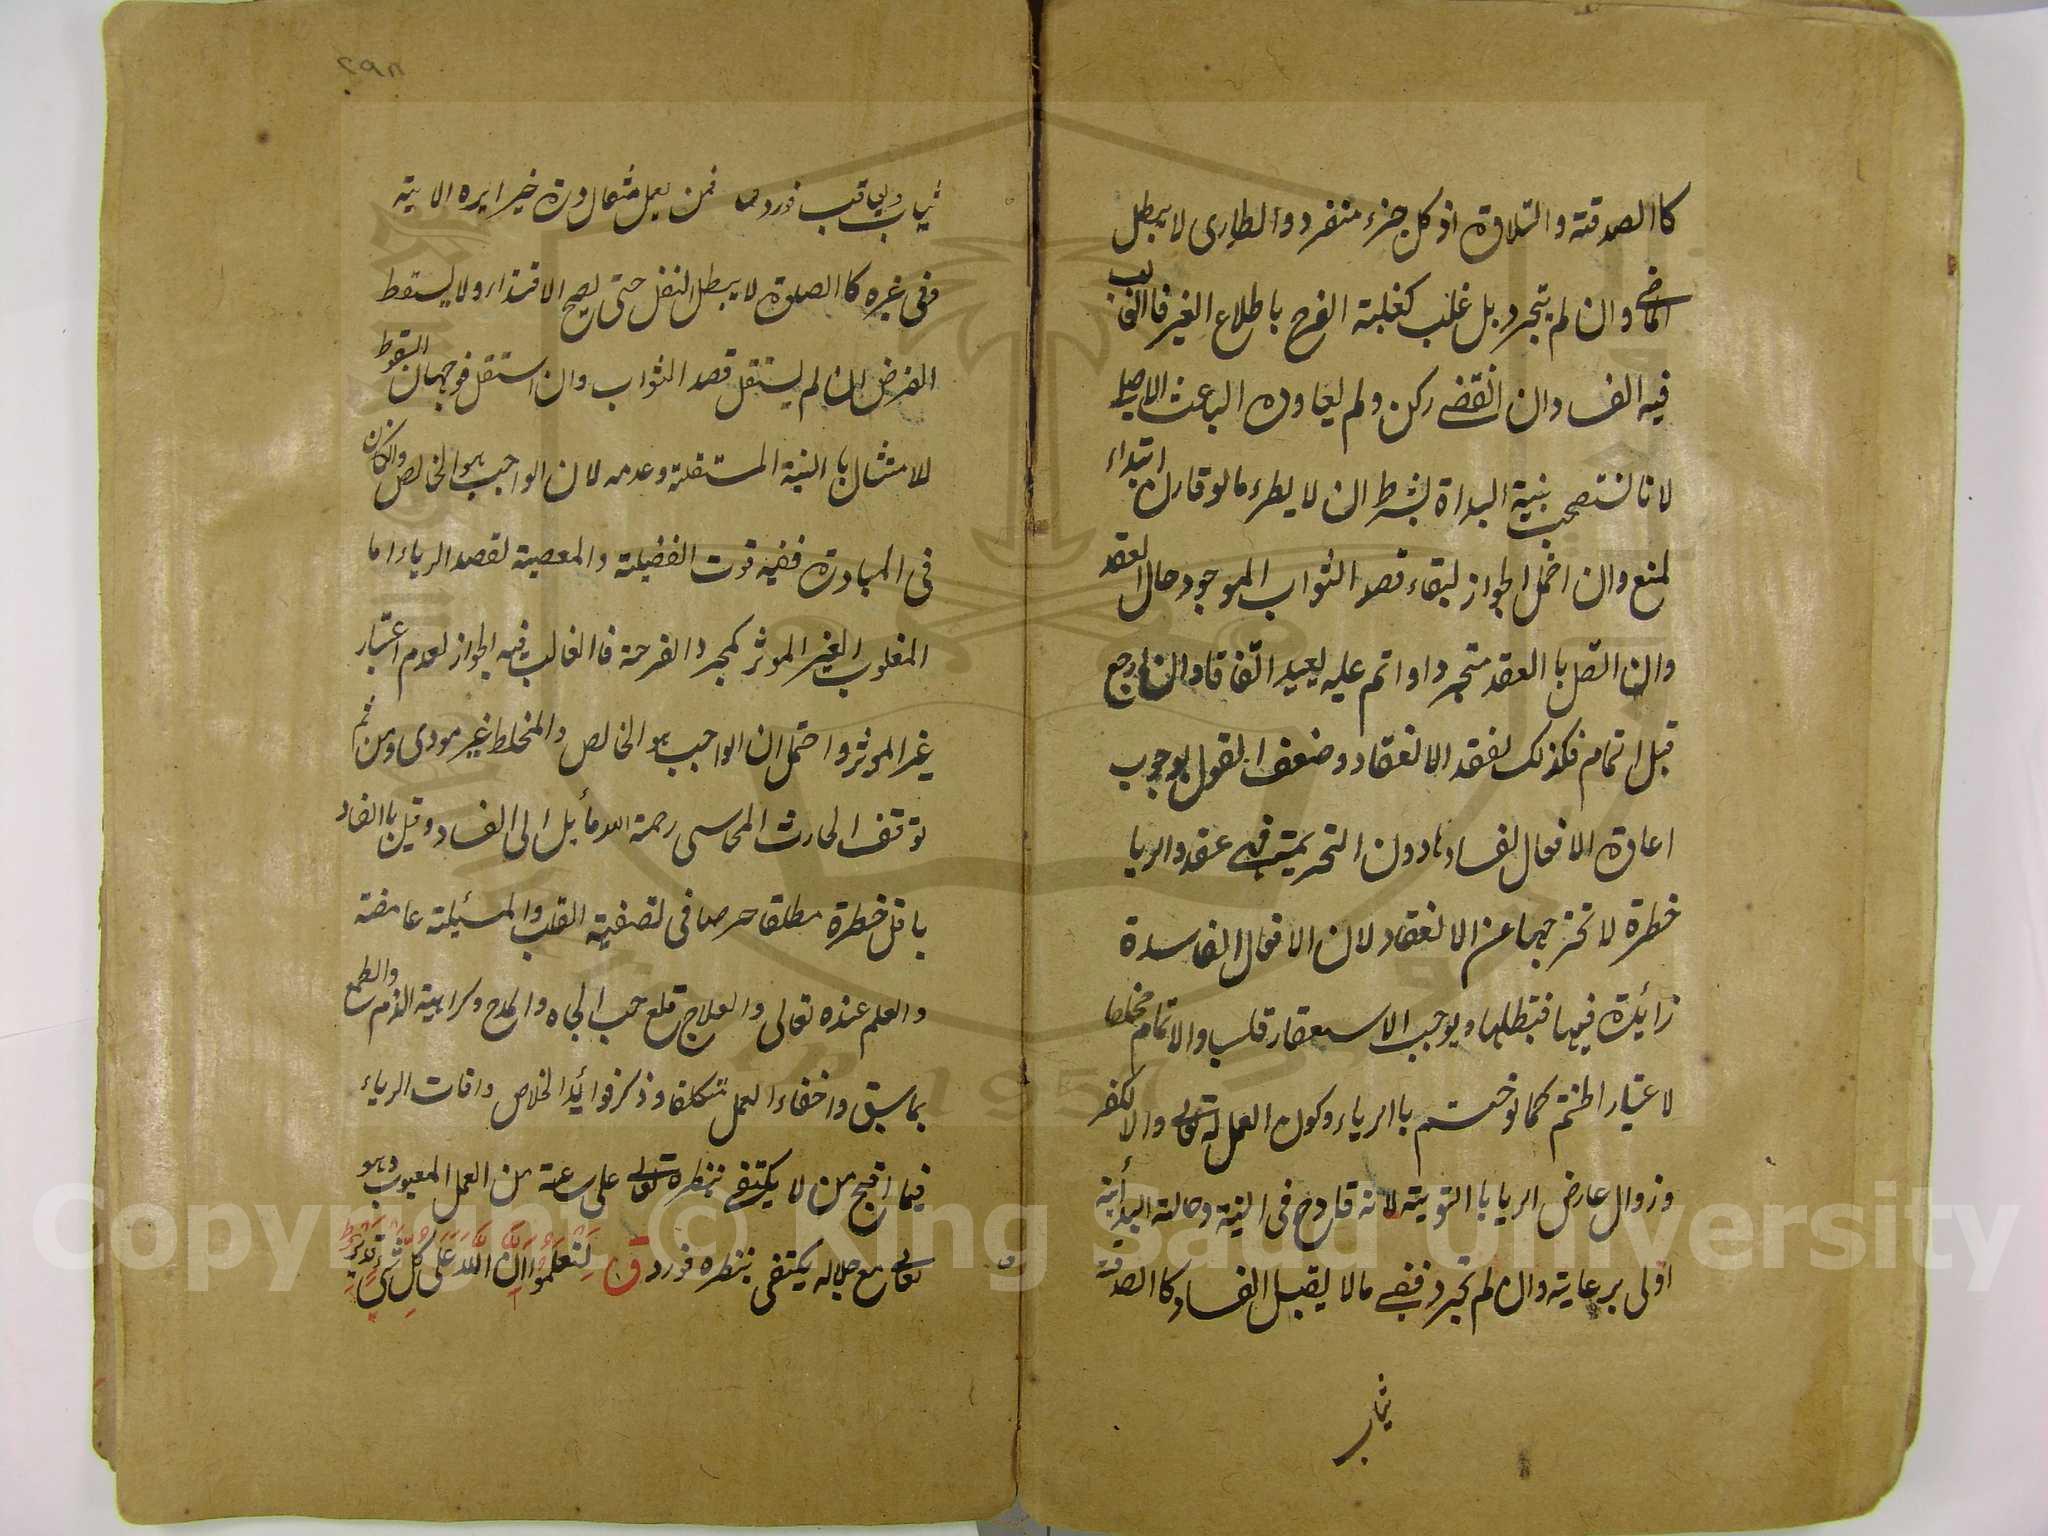 كا الصدقة والتلاوة اذ كل جزء منفرد والطارى لا يبطل
الماضى وان لم يتجرد بل غلب كغلبة الفرح باطلاع الغير فا الغالب
فيه الفساد ان انقضى ركن ولم يعاوده الباعث الاصلى
لانا نستصحب بنية البداة بشرط ان لا يطرء ما لو قارن ابتداء
لمنع وان احتمل الجواز لبقاء قصد الثواب الموجود حال العقد
وان اتصل با العقد متجردا واتم عليه يعيد اتفاقا وان رجع
قبل اتمام فكذلك لفقد الانعقاد وضعف القول بوجوب
اعادة الافعال لفسادها دون التحريمة عقد والريا
خطرة لا تخرجها عن الانعقاد لان الافعال الفاسدة
زائدة فيها فتبطلها ويوجب الاستغفار قلب والاتمام مخلصا
لاعتبار الختم كما لو ختم با الرياء وكون العمل له تعالى والا لكفر
وزوال عارض الريا با التوبة لانه قادح فى النية وحالة البدأية
اولى برعاية وان لم تجرد ففى مالا يقبل الفساد كا الصدقة
ثياب
٢٩٨
ثياب ويعاقب فورد ص فمن يعمل مثقال ذرة خيرا يره الاية
وفى غيره كا الصلوة لا يبطل النفل حتى يصح الاقتداء ولا يسقط
الفرض ان لم يستقل قصد الثواب وان استقل فوجهان السقوط
للامتثال با النية المستقلة وعدمه لان الواجب هو الخالص وان كان
فى المبادرة ففيه فوت الفضيلة والمعصية لقصد الرياء اما
المغلوب الغير الموثر كمجرد الفرحة فا الغالب فيه الجواز لعدم اعتبار
غير الموثر واحتمل ان الواجب هو الخالص والمختلط غير مودى ومن ثم
توقف الحارث المحاسبى رحمة الله مأيل الى الفساد وقيل با الفساد
باقل خطرة مطلقا حرصا فى تصفية القلب والمسئيلة غامضة
والعلم عنده تعالى والعلاج قلع حب الجاه والمدح وكراهية الذم والطمع
بما سبق واخفاء العمل تتكلفا وذكر فوائد الخلاص وافات الرياء
فيما اقبح من لا يكتفى بنظره تعالى على ساعة من العمل المعيوب وهو
تعالى مع جلاله يكتفى بنظره فورد ق لِتَعلَمُوا اَنَّ اللَّهَ عَلَى كُلِّ شَىْءٍ قَدِيرٌ
Copyright © King Saud University
1957